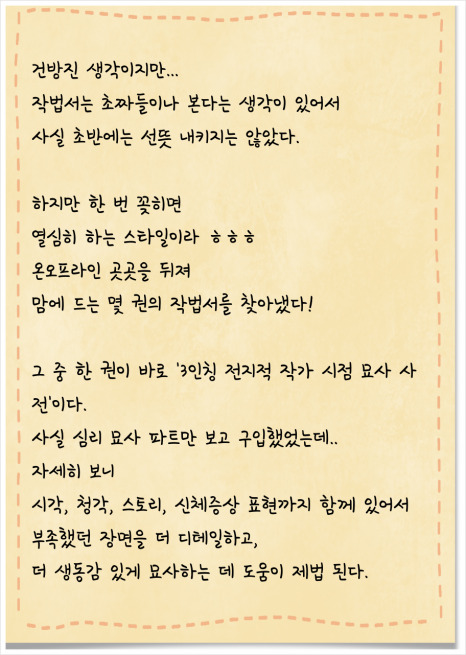 건방진 생각이지만...
작법서는 초짜들이나 본다는 생각이 있어서
사실 초반에는 선뜻 내키지는 않았다.
하지만 한 번 꽂히면
열심히 하는 스타일이라 ㅎㅎㅎ
온오프라인 곳곳을 뒤져
맘에 드는 몇 권의 작법서를 찾아냈다!
그 중 한 권이 바로 '3인칭 전지적 작가 시점 묘사 사
전'이다.
사실 심리 묘사 파트만 보고 구입했었는데..
자세히 보니
시각, 청각, 스토리, 신체증상 표현까지 함께 있어서
부족했던 장면을 더 디테일하고,
더 생동감 있게 묘사하는 데 도움이 제법 된다.